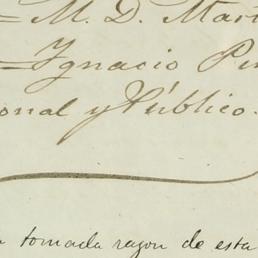 =M. D. Mart
=Ignacio Pu
onal y Público.
tomada razon de esta